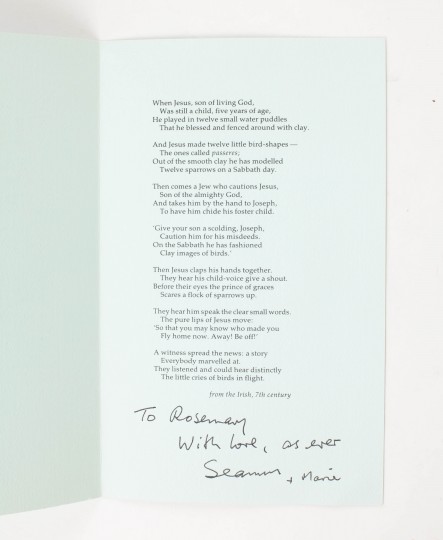 When Jesus, son of living God,
Was still a child, five years of age,
He played in twelve small water puddles
That he blessed and fenced around with clay.
And Jesus made twelve little bird-shapes —
The ones called passeres;
Out of the smooth clay he has modelled
Twelve sparrows on a Sabbath day.
Then comes a Jew who cautions Jesus,
Son of the almighty God,
And takes him by the hand to Joseph,
To have him chide his foster child.
'Give your son a scolding, Joseph,
Caution him for his misdeeds.
On the Sabbath he has fashioned
Clay images of birds.'
Then Jesus claps his hands together.
They hear his child-voice give a shout.
Before their eyes the prince of graces
Scares a flock of sparrows up.
They hear him speak the clear small words.
The pure lips of Jesus move:
'So that you may know who made you
Fly home now. Away! Be off!'
A witness spread the news: a story
Everybody marvelled at.
They listened and could hear distinctly
The little cries of birds in flight.
from the Irish, 7th century
To Rosemary
With love, as ever
Seamus + Marie